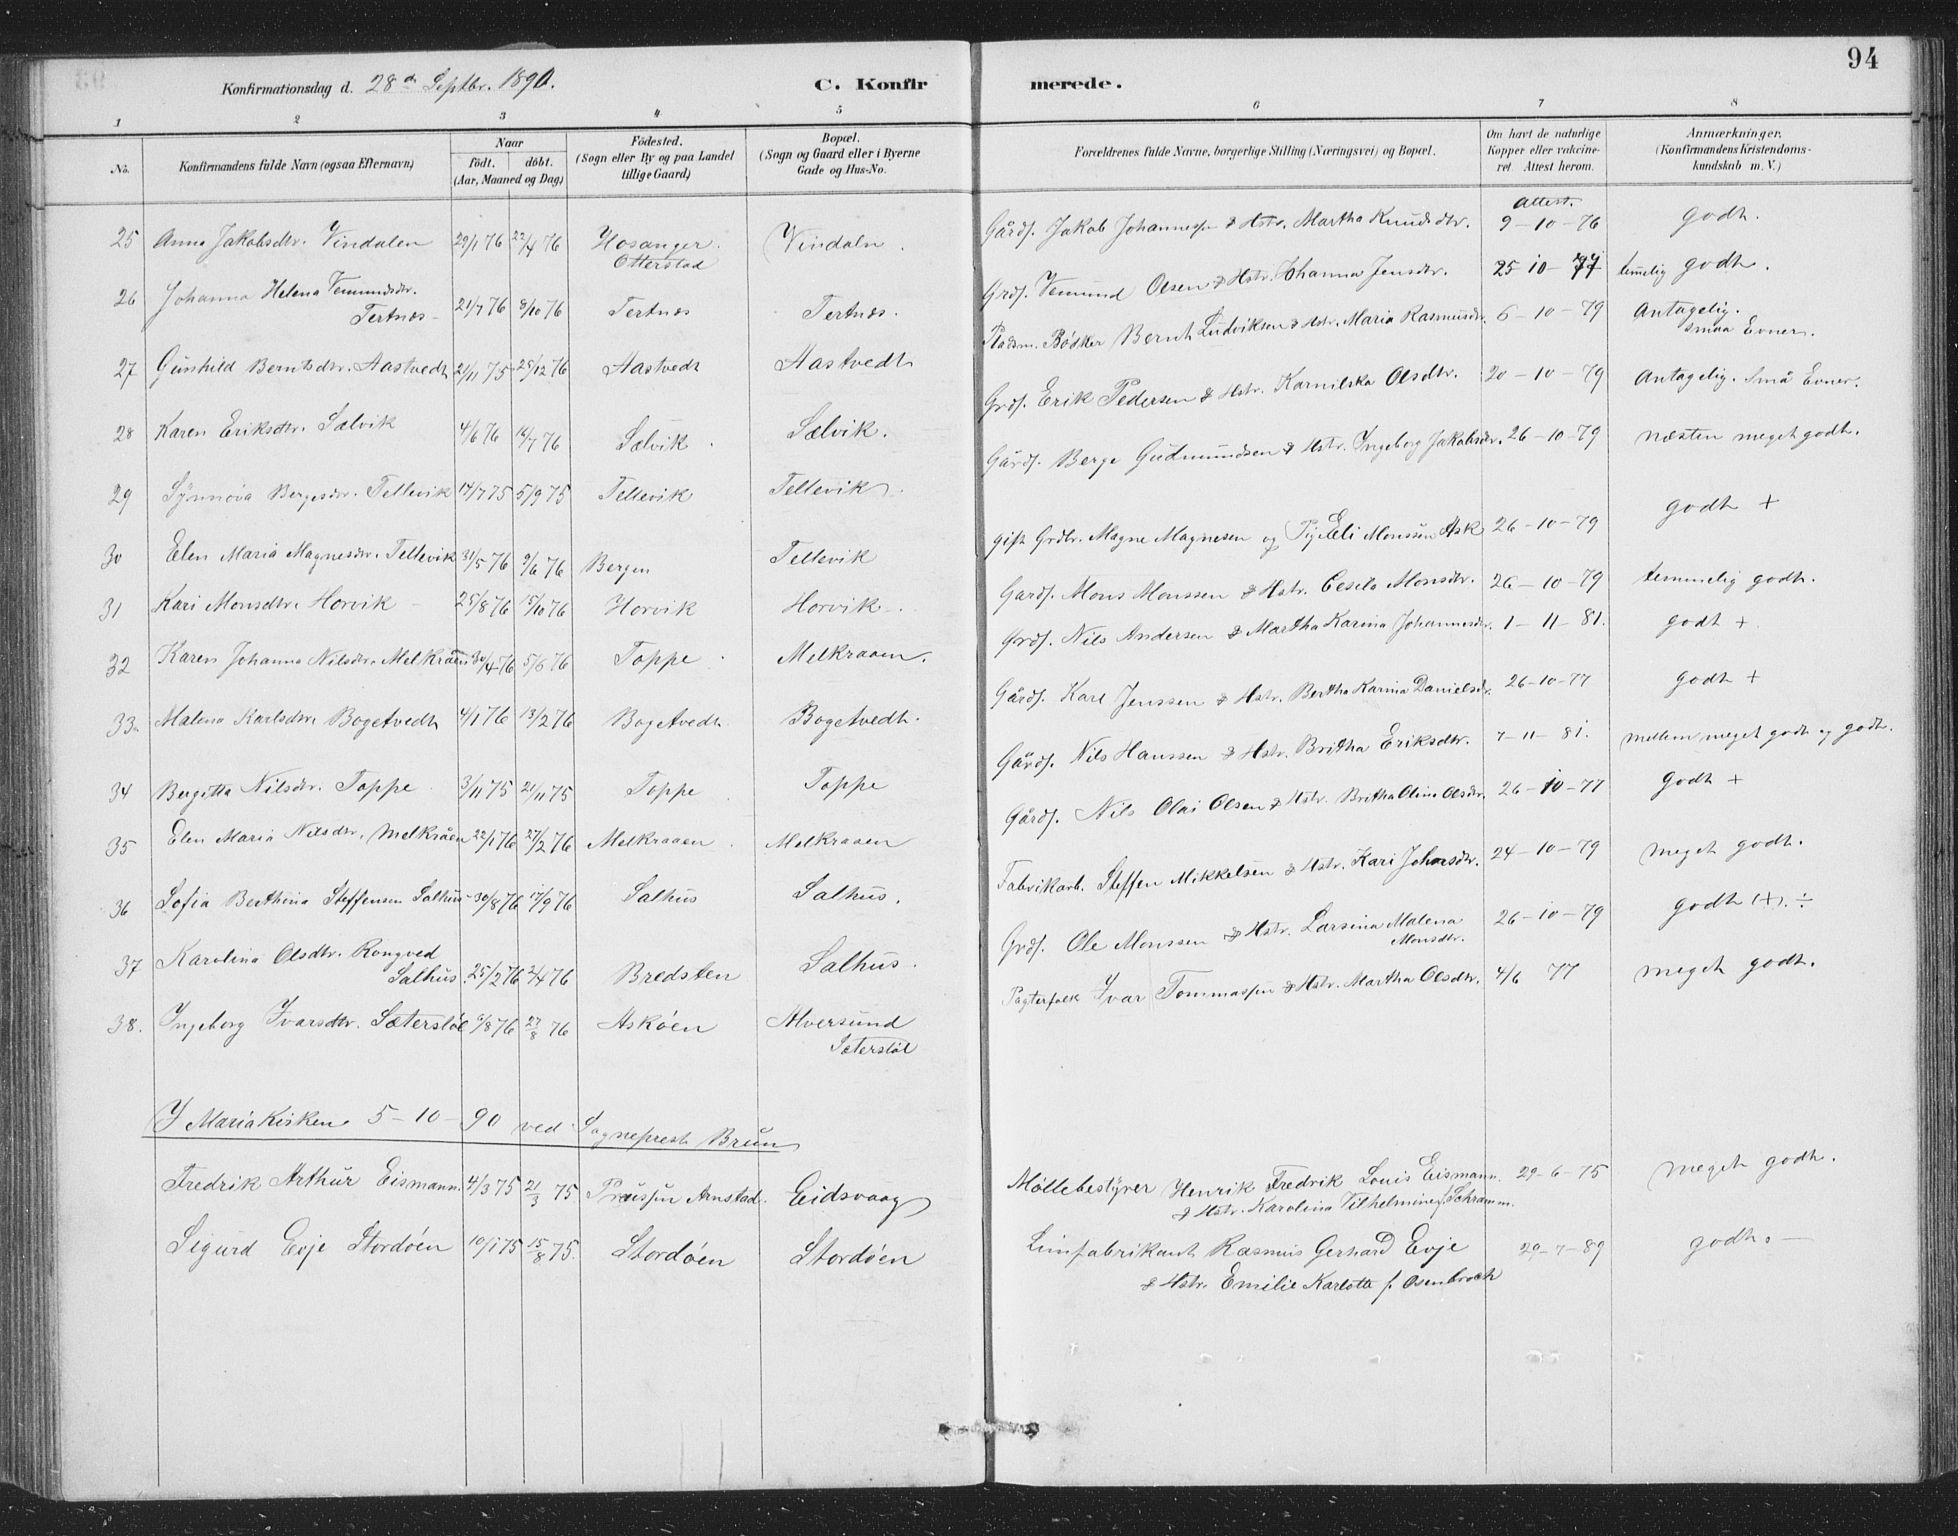 94
Konfirmationsdag d. 28de Septbr. 1890. C. Konfirmerede.
1 2 3 4 5 6 7 8
No. Konfirmandens fulde Navn (ogsaa Efternavn) Naar födt. döbt. (Aar, Maaned og Dag) Födested. (Sogn eller By og paa Landet tillige Gaard) Bopæl. (Sogn og Gaard eller i Byerne Gade og Hus-No. Forældrenes fulde Navne, borgerlige Stilling (Næringsvei) og Bopæl. Om havt de naturlige Kopper eller vakcineret. Attest herom. Anmærkninger. (Konfirmandens Kristendomskundskab m. V.)
25 Anna Jakobsdtr. Vindalen 29/1 76 22/4 76 Hosanger Otterstad Vindaln. Gårdf. Jakob Johannessen & Hstr. Martha Knudsdtr. Attest. 9-10-76 godt.
26 Johanna Helena Vemundsdtr. Tertnæs 21/7 76 8/10 76 Tertnæs Tertnæs. Grdf. Vemund Olsen & Hstr. Johanna Jensdtr. 25-10-77 temmelig godt.
27 Gunhild Berntsdtr. Aastvedt 21/11 75 25/12 76 Aastvedt Aastvedt Pladsm. Bødker Bernt Ludviksen & Hstr. Maria Rasmusdtr. 6-10-79 Antagelig. smaa Evner.
28 Karen Eriksdtr. Sælvik 4/6 76 16/7 76 Sælvik. Sælvik. Grdf. Erik Pedersen & Hstr. Karnilska Olsdtr. 20-10-79 Antagelig. Små Evner.
29 Synnøva Bergesdtr. Tellevik 14/7 75 5/9 75 Tellevik Tellevik. Gårdf. Berge Gudmundsen & Hstr. Ingeborg Jakobsdtr. 26-10-79 næsten meget godt.
30 Elen Maria Magnesdtr. Tellevik 31/5 76 9/6 76 Bergen Tellevik gift Grdbr. Magne Magnesen og Pige Eli Monssen Ask 26-10-79 godt +
31 Kari Monsdtr. Horvik 25/8 76 15/10 76 Horvik Horvik. Gardf. Mons Monssen & Hstr. Cesila Monsdtr. 26-10-79 temmelig godt.
32 Karen Johanna Nilsdtr. Melkråen 30/4 76 5/6 76 Toppe Melkraaen. Grdf. Nils Andersen & Martha Karina Johannesdtr. 1-11-81. godt +
33 Malena Karlsdtr. Bogetvedt 4/1 76 13/2 76 Bogetvedt. Bogetvedt. Gårdf. Karl Jenssen & Hstr. Bertha Karina Danielsdtr. 26-10-77 godt +
34 Bergitta Nilsdtr. Toppe 3/11 75 21/11 75 Toppe Toppe Gårdf. Nils Hanssen & Hstr. Britha Eriksdtr. 7-11-81. mellem meget godt og godt.
35 Elen Maria Nilsdtr. Melkråen 22/1 76 27/2 76 Melkraaen Melkraaen Gårdf. Nils Olai Olsen & Hstr. Britha Olina Olsdtr. 26-10-77 godt +
36 Sofia Berthina Steffensen Salhus 30/8 76 17/9 76 Salhus Salhus. Fabrikarb. Steffen Mikkelsen & Hstr. Kari Johnsdtr. 24-10-79 meget godt.
37 Karolina Olsdtr. Rongved Salhus. 25/2 76 2/4 76 Bredsten Salhus. Grdf. Ole Monssen & Hstr. Larsina Malena Monsdtr. 26-10-79 godt (+). ÷
38. Ingeborg Ivarsdtr. Sæterstøl 6/8 76 27/8 76 Askøen Alversund Sæterstøl Pagterfolk Ivar Tommassen & Hstr. Martha Olsdtr. 4/6 77 meget godt.
I Mariakirken 5-10-90 ved Sogneprest Brun
Fredrik Arthur Eismann 4/3 75 21/3 75 Preussen Arnstad. Eidsvaag Møllebestyrer Henrik Fredrik Louis Eismann. & Hstr. Karolina Vilhelmine f. Schramm. 29-6-75 meget godt.
Sigurd Evje Stordøen 10/1 75 15/8 75. Stordøen Stordøen Limfabrikant Rasmus Gerhard Evje & Hstr. Emilie Karlotte f. Osenbroch 29-7-89 godt.